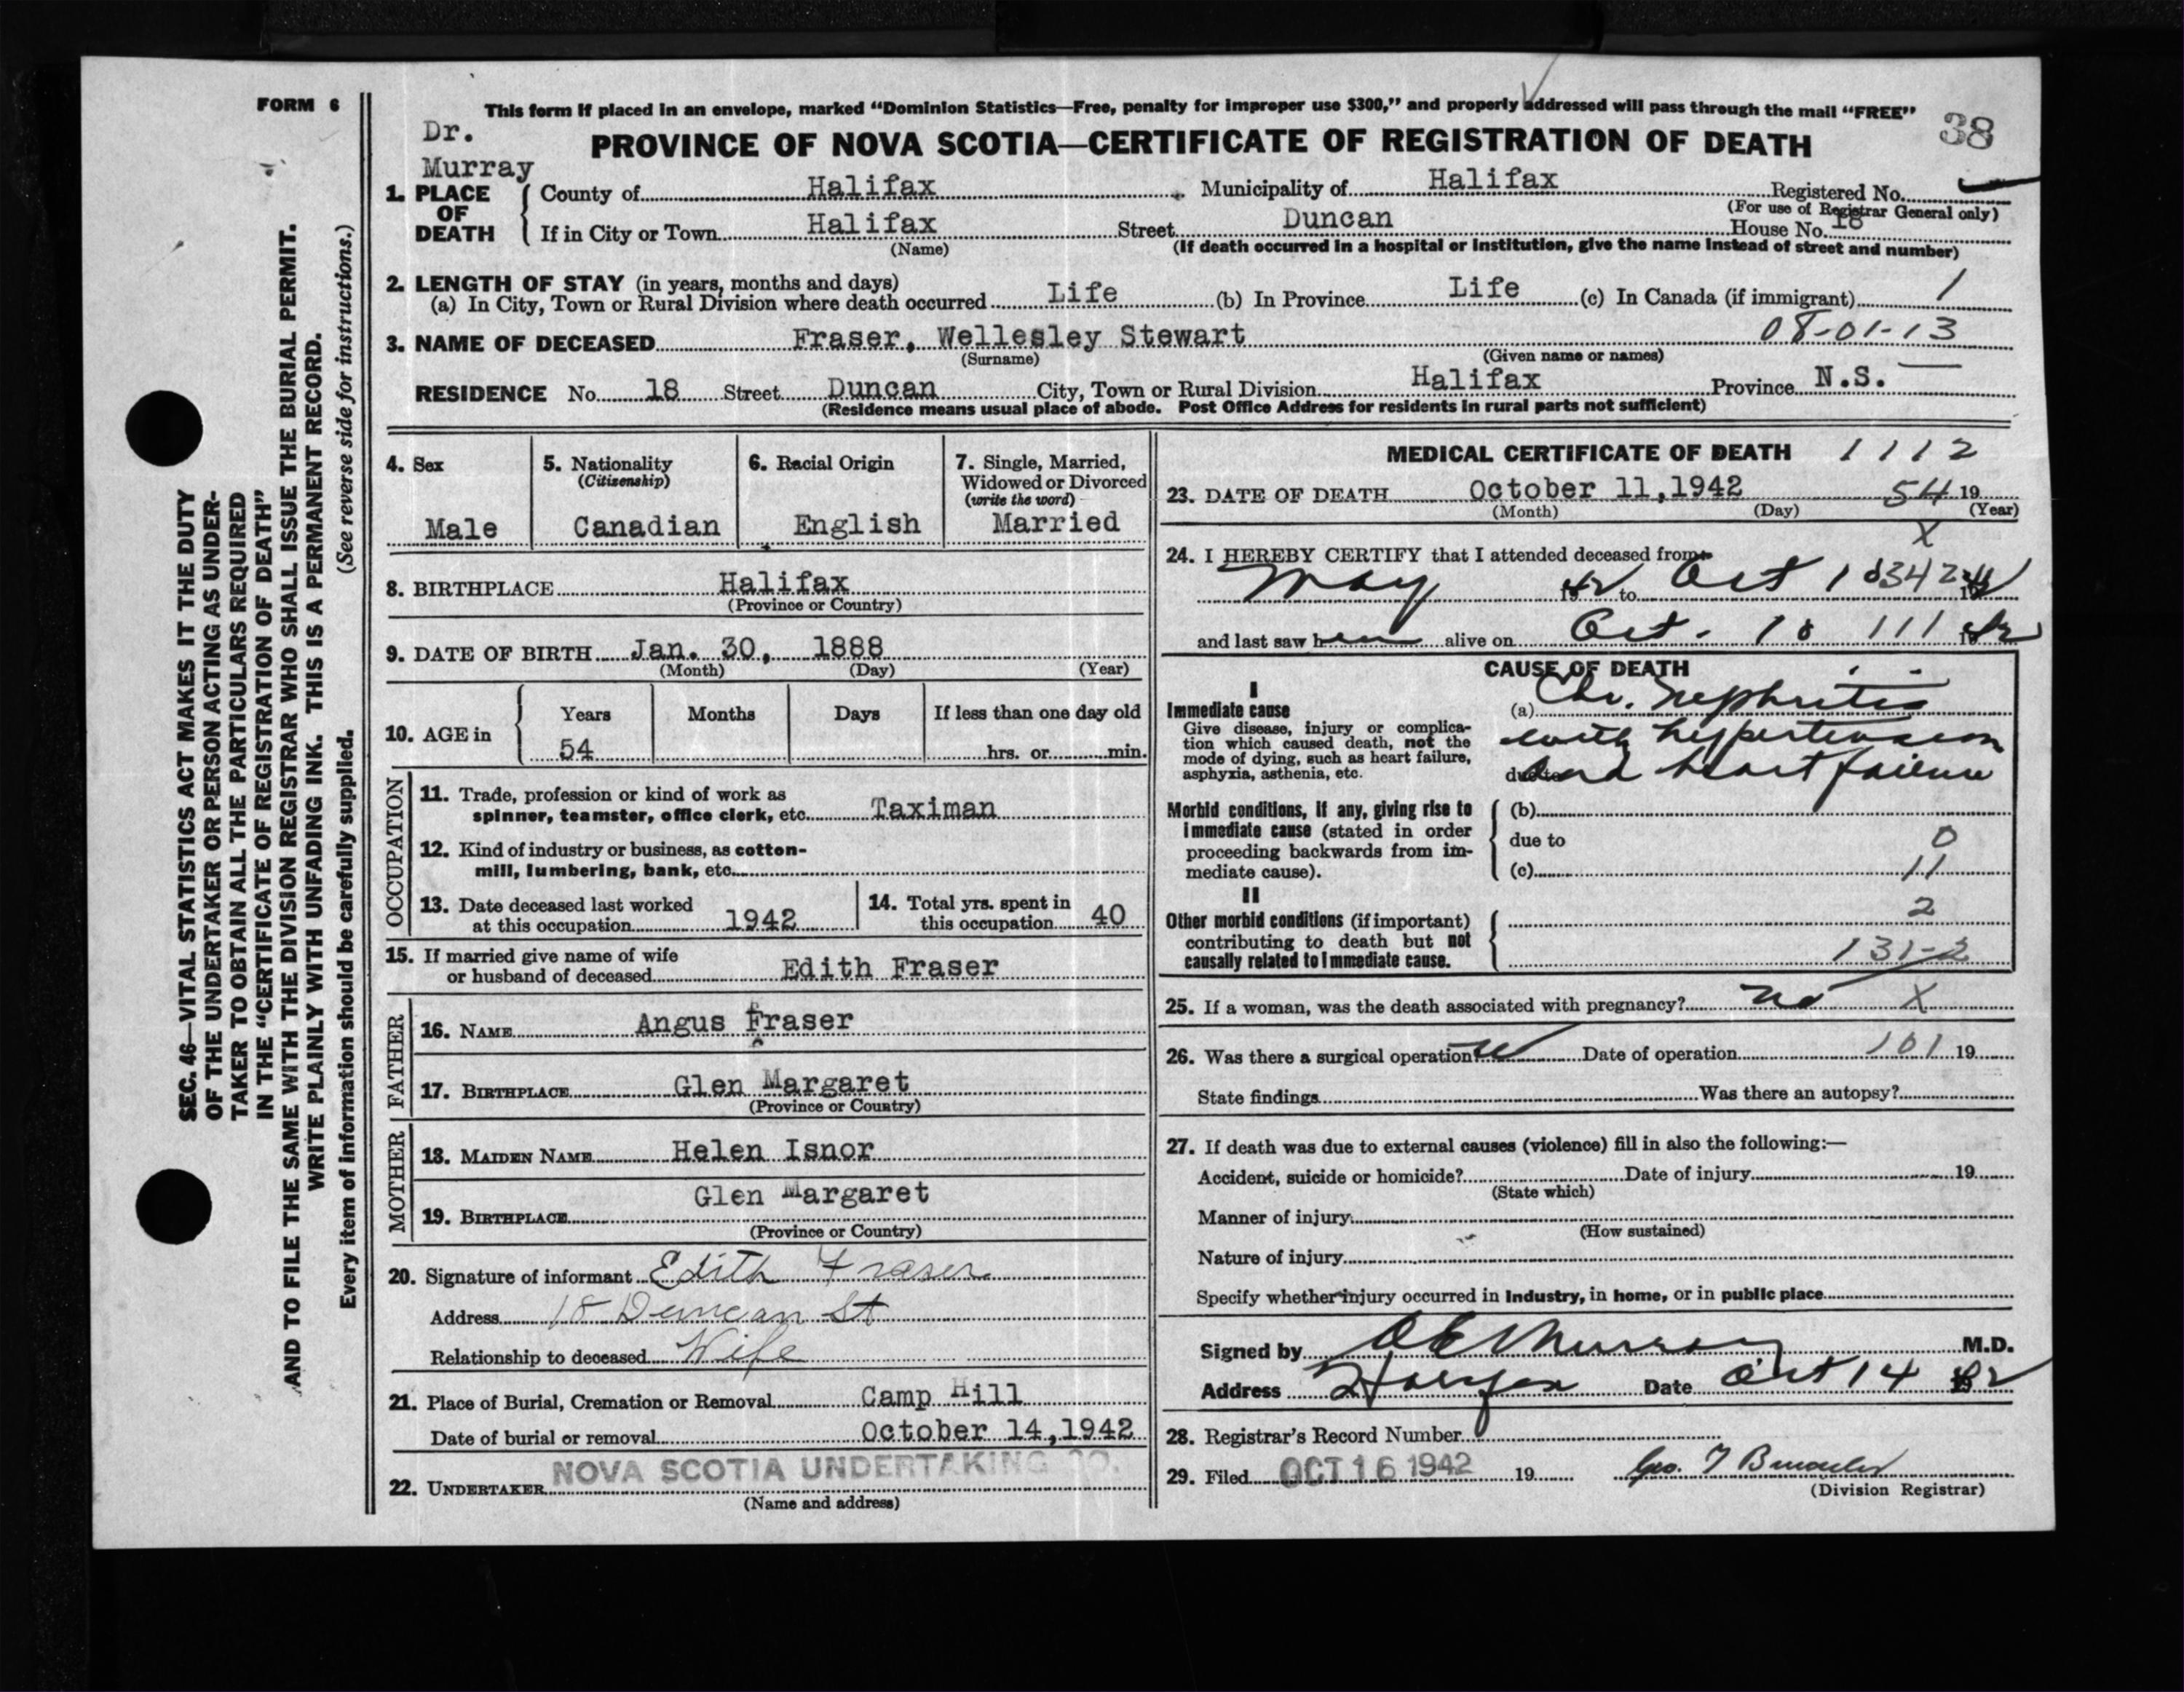 FORM 6
This form if placed in an envelope, marked “Dominion Statistics—Free, penalty for improper use $300,” and properly addressed will pass through the mail “FREE”
Dr.
Murray
PROVINCE OF NOVA SCOTIA—CERTIFICATE OF REGISTRATION OF DEATH
38
1. PLACE OF DEATH
County of Halifax Municipality of Halifax Registered No.
(For use of Registrar General only)
If in City or Town Halifax Street Duncan House No. 18
(Name) (If death occurred in a hospital or institution, give the name instead of street and number)
2. LENGTH OF STAY (in years, months and days)
(a) In City, Town or Rural Division where death occurred Life (b) In Province Life (c) In Canada (if immigrant) 1
08-01-13
3. NAME OF DECEASED Fraser, Wellesley Stewart
(Surname) (Given name or names)
RESIDENCE No. 18 Street Duncan City, Town or Rural Division Halifax Province N.S.
(Residence means usual place of abode. Post Office Address for residents in rural parts not sufficient)
4. Sex
Male
5. Nationality
(Citizenship)
Canadian
6. Racial Origin
English
7. Single, Married,
Widowed or Divorced
(write the word)
Married
8. BIRTHPLACE Halifax
(Province or Country)
9. DATE OF BIRTH Jan. 30, 1888
(Month) (Day) (Year)
10. AGE in
Years Months Days If less than one day old
54 hrs. or min.
OCCUPATION
11. Trade, profession or kind of work as
spinner, teamster, office clerk, etc. Taximan
12. Kind of industry or business, as cotton-
mill, lumbering, bank, etc.
13. Date deceased last worked
at this occupation 1942
14. Total yrs. spent in
this occupation 40
15. If married give name of wife
or husband of deceased Edith Fraser
FATHER
16. NAME Angus Fraser
17. BIRTHPLACE Glen Margaret
(Province or Country)
MOTHER
18. MAIDEN NAME Helen Isnor
19. BIRTHPLACE Glen Margaret
(Province or Country)
20. Signature of informant Edith Fraser
Address 18 Duncan St
Relationship to deceased Wife
21. Place of Burial, Cremation or Removal Camp Hill
Date of burial or removal October 14,1942
22. UNDERTAKER NOVA SCOTIA UNDERTAKING CO.
(Name and address)
MEDICAL CERTIFICATE OF DEATH 1112
23. DATE OF DEATH October 11,1942 54 19
(Month) (Day) (Year)
X
24. I HEREBY CERTIFY that I attended deceased from
May 1942 to Oct 10 342 1942
and last saw him alive on Oct. 10 111 1942
CAUSE OF DEATH
I
Immediate cause
Give disease, injury or complica-
tion which caused death, not the
mode of dying, such as heart failure,
asphyxia, asthenia, etc.
(a) Chr. Nephritis
with hypertension
due to and heart failure
Morbid conditions, if any, giving rise to
immediate cause (stated in order
proceeding backwards from im-
mediate cause).
(b)
due to 0
(c) 11
II
Other morbid conditions (if important)
contributing to death but not
causally related to immediate cause.
2
131-2
25. If a woman, was the death associated with pregnancy? no X
26. Was there a surgical operation Date of operation 101 19
State findings Was there an autopsy?
27. If death was due to external causes (violence) fill in also the following:—
Accident, suicide or homicide? Date of injury 19
(State which)
Manner of injury
(How sustained)
Nature of injury
Specify whether injury occurred in industry, in home, or in public place
Signed by Murray M.D.
Address Halifax Date Oct 14 1942
28. Registrar's Record Number
29. Filed OCT 16 1942 19
Geo.
(Division Registrar)
SEC. 46—VITAL STATISTICS ACT MAKES IT THE DUTY
OF THE UNDERTAKER OR PERSON ACTING AS UNDER-
TAKER TO OBTAIN ALL THE PARTICULARS REQUIRED
IN THE “CERTIFICATE OF REGISTRATION OF DEATH”
AND TO FILE THE SAME WITH THE DIVISION REGISTRAR WHO SHALL ISSUE THE BURIAL PERMIT.
WRITE PLAINLY WITH UNFADING INK. THIS IS A PERMANENT RECORD.
Every item of information should be carefully supplied. (See reverse side for instructions.)